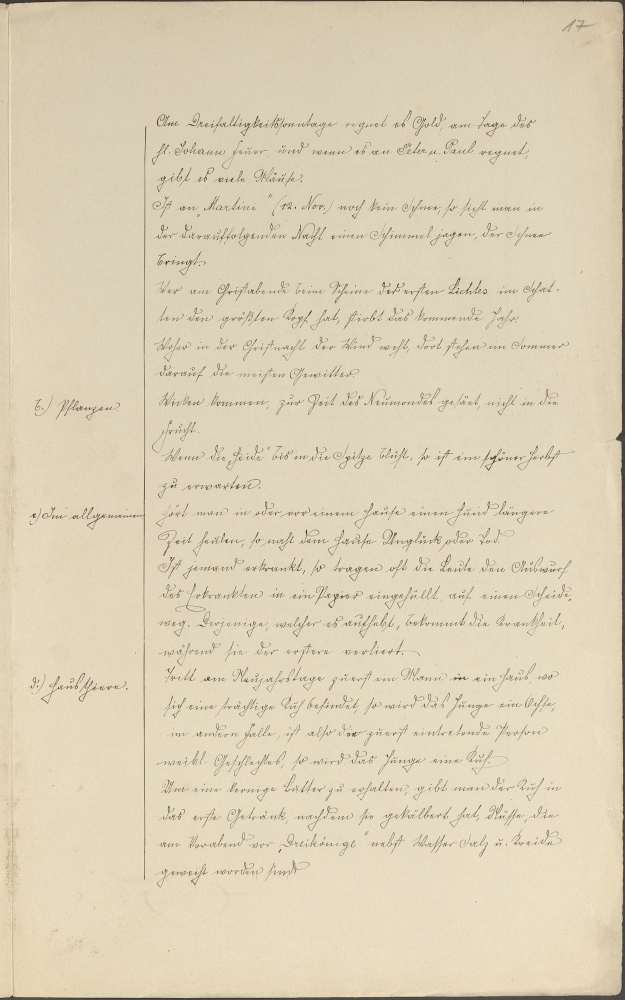 17
Am Dreifaltigkeitssonntage regnet es Gold, am Tage des
hl. Johann Feuer und wenn es an Peter u. Paul regnet,
gibt es viele Mäuse.
Ist an „Martini“ (12. Nov.) noch kein Schnee, so sieht man in
der darauffolgenden Nacht einen Schimmel jagen, der Schnee
bringt.
Wer am Christabende beim Scheine des ersten Lichtes im Schat-
ten den größten Kopf hat, stirbt das kommende Jahr.
Woher in der Christnacht der Wind weht, dort stehen im Sommer
darauf die meisten Gewitter.
b.) Pflanzen.
Wicken kommen, zur Zeit des Neumondes gesäet, nicht in die
Frucht.
Wenn die „Heide“ bis in die Spitze blüht, so ist ein schöner Herbst
zu erwarten.
c) Im allgemeinen
Hört man in oder vor einem Hause einen Hund längere
Zeit heulen, so naht dem Hause Unglück oder Tod.
Ist jemand erkrankt, so tragen oft die Leute den Auswurf
des Erkrankten in ein Papier eingehüllt auf einen Scheide-
weg. Derjenige, welcher es aufhebt, bekommt die Krankheit,
während sie der erstere verliert.
d.) Hausthiere.
Tritt am Neujahrstage zuerst ein Mann in ein Haus, wo
sich eine trächtige Kuh befindet, so wird das Junge ein Ochse,
im andern Falle, ist also die zuerst eintretende Person
weibl. Geschlechtes, so wird das Junge eine Kuh.
Um eine kernige Butter zu erhalten, gibt man der Kuh in
das erste Getränk, nachdem sie gekälbert hat, Nüsse, die
am Vorabend vor „Dreikönige“ nebst Wasser Salz u. Kreide
geweiht worden sind.